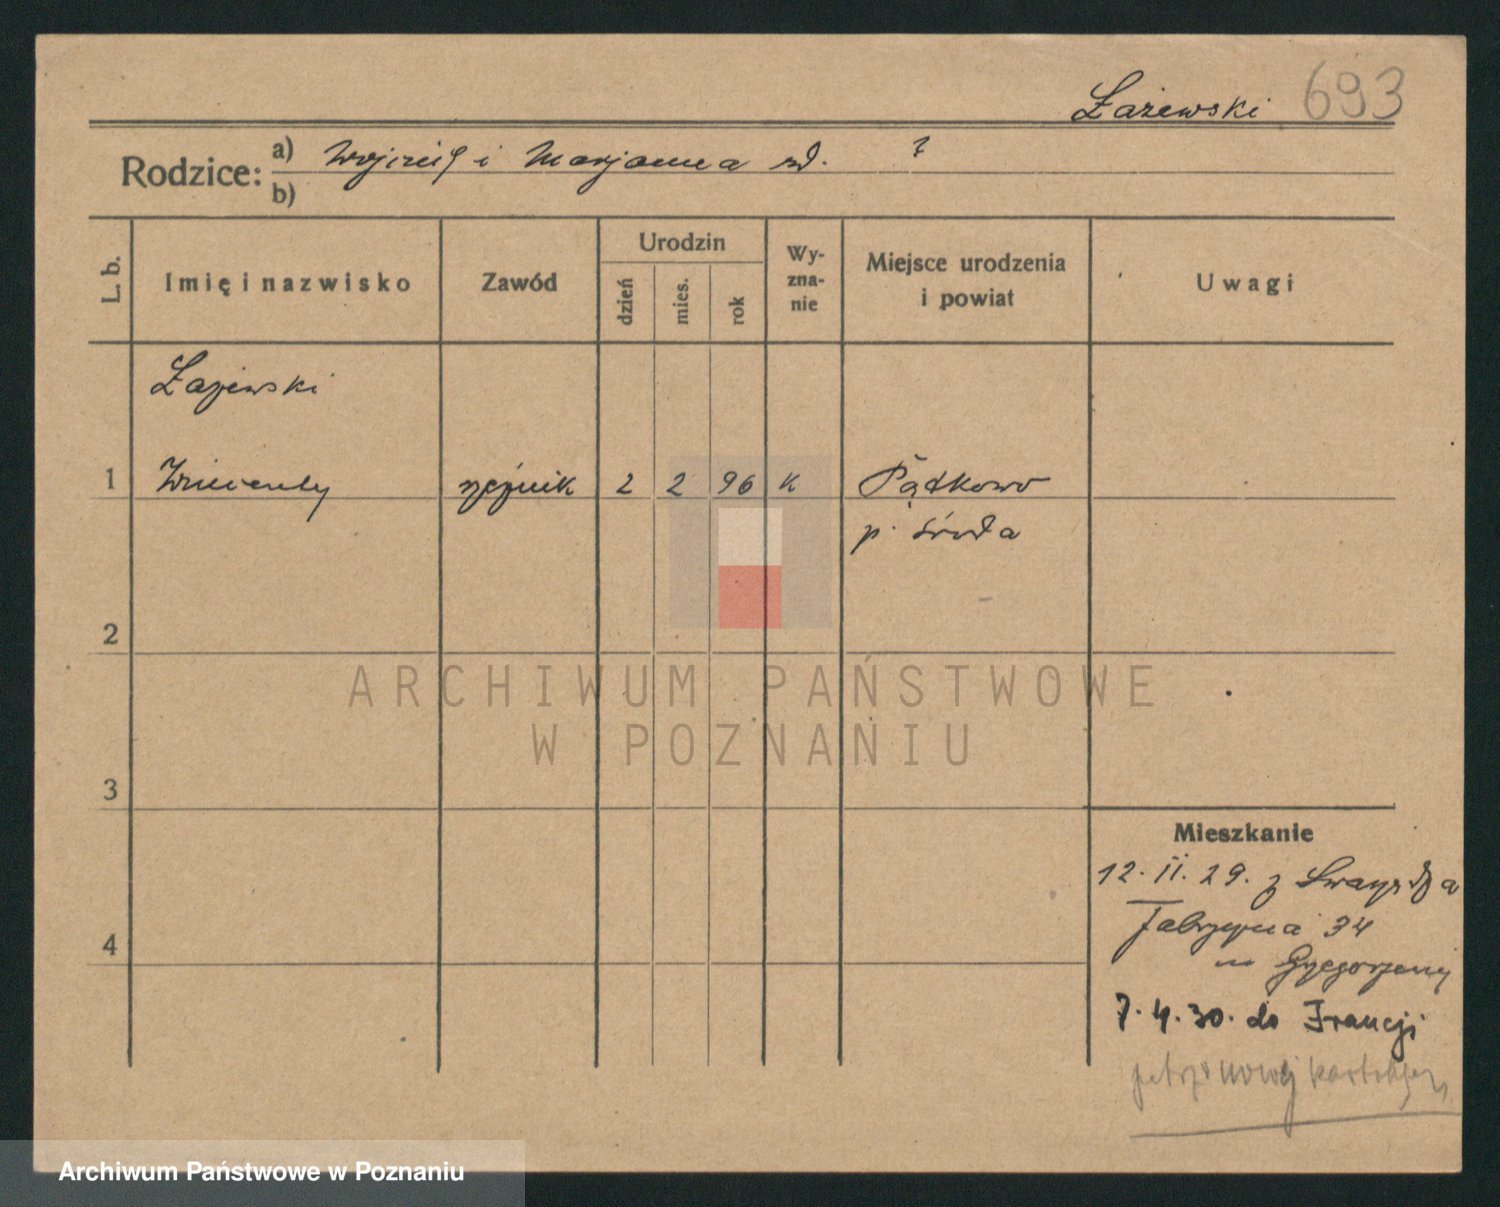 Łażewski 693
Rodzice: a) Wojciech i Marjanna zd. ?
b)
L. b.
Imię i nazwisko
Zawód
Urodzin
dzień
mies.
rok
Wy-
zna-
nie
Miejsce urodzenia
i powiat
Uwagi
Łażewski
1 Wincenty rzeźnik 2 2 96 K Pądkowo
p. Środa
2
ARCHIWUM PAŃSTWOWE
W POZNANIU
3
Mieszkanie
12. II. 29. z
4 Fabryczna 34
7. 4. 30. do Francji
patrz nowej
Archiwum Państwowe w Poznaniu